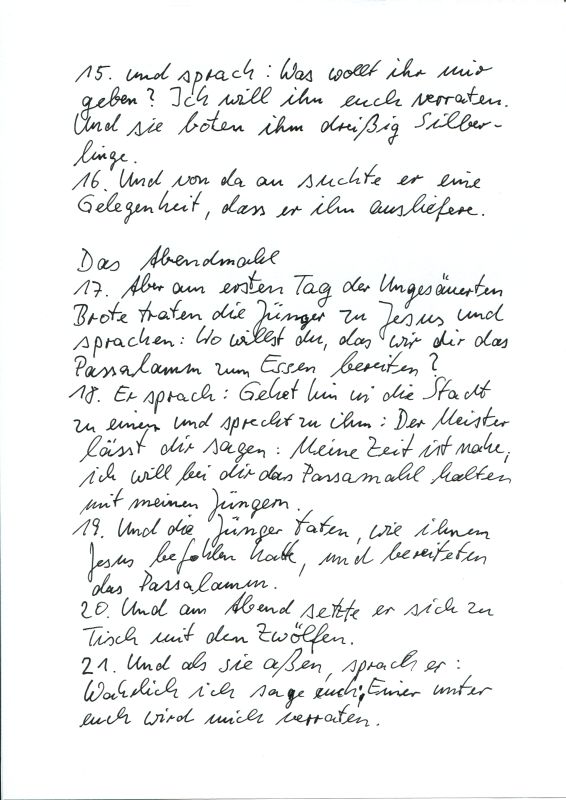 15. und sprach: Was wollt ihr mir
geben? Ich will ihn euch verraten.
Und sie boten ihm dreißig Silber-
linge.
16. Und von da an suchte er eine
Gelegenheit, dass er ihn ausliefere.
Das Abendmahl
17. Aber am ersten Tag der Ungesäuerten
Brote traten die Jünger zu Jesus und
sprachen: Wo willst du, das wir dir das
Passalamm zum Essen bereiten?
18. Er sprach: Gehet hin in die Stadt
zu einem und sprecht zu ihm: Der Meister
lässt dir sagen: Meine Zeit ist nahe,
ich will bei dir das Passamahl halten
mit meinen Jüngern.
19. Und die Jünger taten, wie ihnen
Jesus befohlen hatte, und bereiteten
das Passalamm.
20. Und am Abend setzte er sich zu
Tisch mit den Zwölfen.
21. Und als sie aßen, sprach er:
Wahrlich ich sage euch, Einer unter
euch wird mich verraten.